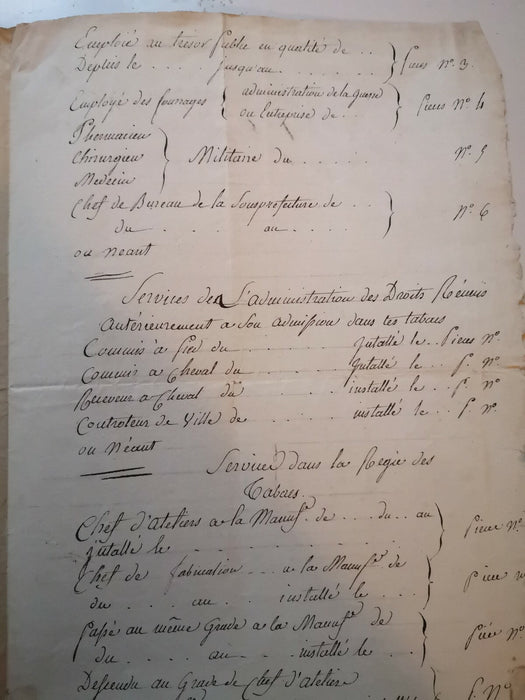 Emploié au tresor public en qualité de . .
Depuis le . . . . jusqu'au . . . . . . Pieces N.º 3.
Employé des fourrages administration de la Guerre
ou Entreprise de . . Pieces N.º 4
Pharmacien
Chirurgien Militaire du . . . . . N.º 5
Medecin
Chef de Bureau de la Sousprefecture de . .
du . . . . . au . . . . N.º 6
ou Neant
Services de L'administration des Droits Réunis
Antérieurement a son admission dans les tabacs
Commis à pied du . . . . . Jntallé le . . Pieces N.º
Commis a Cheval du . . . . Jntallé le . . P. N.º
Receveur a Cheval du . . . . installé le . . P. N.º
Controteur de Ville de . . . . installé le . . P. N.º
ou Néant
Services dans la Regie des
Tabacs.
Chef d'ateliers a la Manuf.re de . . . du . . au
Jntallé le . . . . . . . . Piece N.º
Chef de fabrication . . . a la Manuf.re de
du . . . au . . . installé le . . . Piece
Passé au même Grade a la Manuf.re de
du . . . . au . . . . installé le . . . Piéce N.º
Descendu au Grade de Chef d'atelier
P. N.º